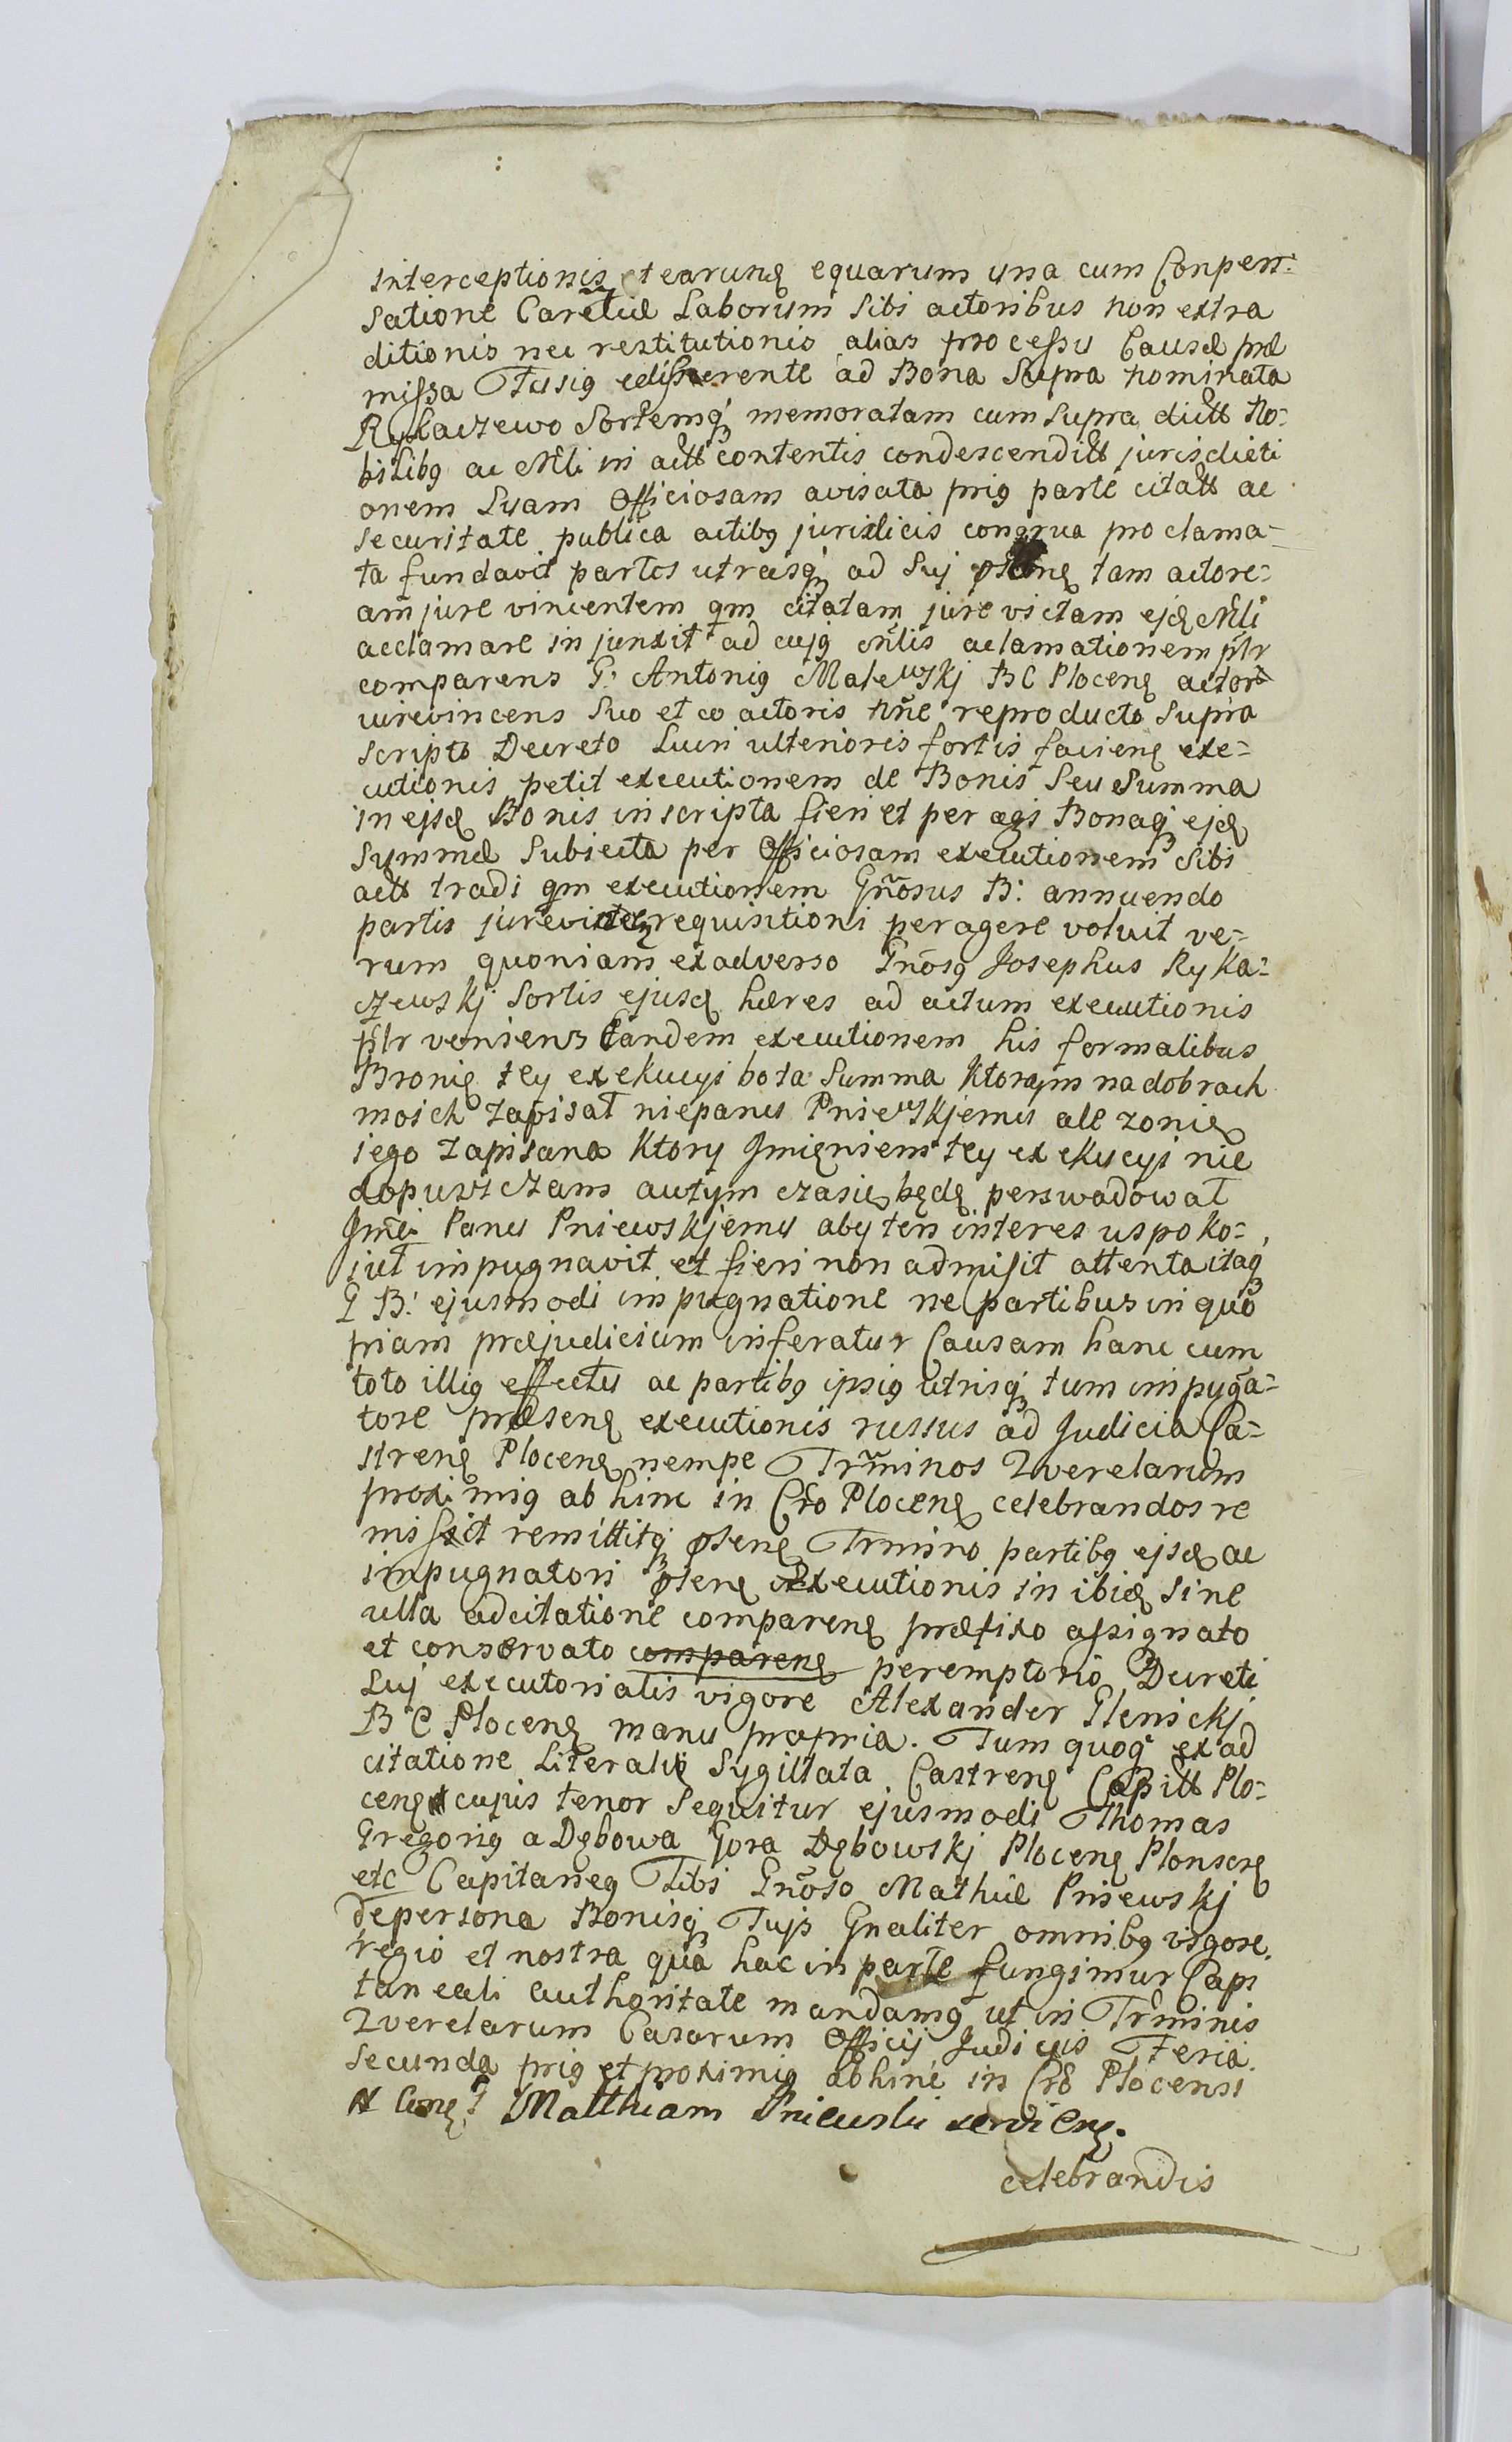 interceptionis et earund equarum una cum Conpen-
satione Caretiæ Laborum sibi actoribus non extra
ditionis nec restitutionis alias processu Causæ præ
missa Fusiꝯ edisserente ad Bona Supra nominata
Rykaczewo Sortemqꝫ memoratam cum supra dictt No-
bilibꝯ ac Mrli in actt contentis condescenditt jurisdicti
onem Suam Officiosam avisata priꝯ parte citatt ac
securitate publica actibꝯ juridicis congrua proclama-
ta fundavit partes utrasqꝫ ad Sui tam actore-
am jure vincentem qm citatam jure victam ejd Mrli
acclamare injunxit ad cujꝯ mrlis aclamationem pslr
comparens G. Antoniꝯ Malewskj BC Plocens actor
iurevincens Suo et co actoris nñe reproducto Supra
scripto Decreto Lucri ulterioris fortis faciend exe-
cutionis petit executionem de Bonis Seu Summa
in ejsd Bonis inscripta fieri et per agi Bonaqꝫ ejd
Summæ Subiecta per Officiosam executionem Sibi
actt tradi qm executionem Gñosus B: annuendo
partis jurevincen requisitioni peragere voluit ve-
rum quoniam exadverso Gñosꝯ Josephus Ryka-
czewskj Sortis ejusd hæres ad actum executionis
pslr veniens Eandem executionem his formalibus
Bronię tey exekucyi bo ta Summa Ktorąm na dobrach
moich zapisał nie panu Pniewskjemu ale zonie
iego zapisana Ktory Jmięniem tey exekucyi nie
dopuszczam a w tym czasie będę perswadował
Jmći Panu Pniewskjemu aby ten interes uspoko-
iuł impugnavit et fieri non admisit attenta itaqꝫ
G B: ejusmodi impugnatione ne partibus in quo
piam præjudicium inferatur Causam hanc cum
toto illiꝯ effectu ac partibꝯ ipsiꝯ utrisqꝫ tum impugna-
tore præsens executionis russus ad Judicia Ca-
strens Plocens nempe Trminos Querelarum
proximiꝯ ab hinc in Cro Plocens celebrandos re
misit remittitqꝫ psens Trmino partibꝯ ejsd ac
impugnatori psens executionis in ibid sine
ulla adcitatione comparend præfixo assignato
et conservato comparend peremptorio Decreti
Sui executorialis vigore Alexander Glenickj
B C Plocens manu propria. Tum quoqꝫ ex ad
citatione Literali Sygillata Castrens Capitt Plo-
cens cujus tenor Sequitur ejusmodi Thomas
Gregoriꝯ a Dębowa Gora Dębowskj Plocens Plonscen
etc Capitaneꝯ Tibi Gñoso Mathiæ Pniewskj
de persona Bonisqꝫ Tujs Gnaliter omnibꝯ vigore
regio et nostra qua hac in parte fungimur Capi
taneali authoritate mandamꝯ ut in Trminis
Querelarum Casarum Officij Judicijs Feria
Secunda priꝯ et proximiꝯ abhinc in Cro Plocensi
Matthiam Pniewski servien.
celebrandis